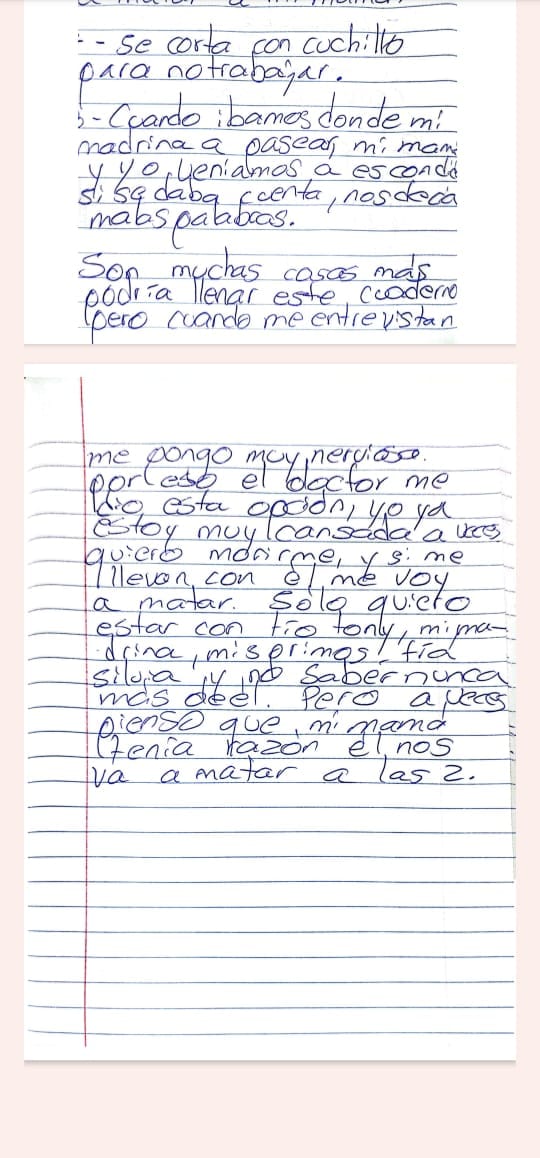 - Se corta con cuchillo
para no trabajar.
- Cuando ibamos donde mi
madrina a pasear, mi mam
y yo, veniamos a escondi
si se daba cuenta, nos decia
malas palabras.
Son muchas cosas más
podría llenar este cuaderno
pero cuando me entrevistan
me pongo muy nerviosa.
por eso el doctor me
dio esta opción, yo ya
estoy muy cansada a veces
quiero morirme, y si me
llevan con el me voy
a matar. Solo quiero
estar con tío tonly, mi ma-
drina, mis primos, tía
silvia y no saber nunca
más de el. Pero a veces
pienso que mi mamá
tenía razón el nos
va a matar a las 2.